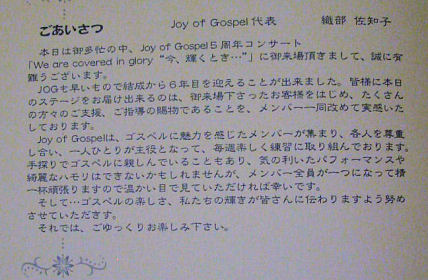 ごあいさつ　Joy of Gospel 代表　織部 佐知子
本日は御多忙の中、Joy of Gospel５周年コンサート
「We are covered in glory “今、輝くとき…”」に御来場頂きまして、誠に有
難うございます。
JOGも早いもので結成から６年目を迎えることが出来ました。皆様に本日
のステージをお届け出来るのは、御来場下さったお客様をはじめ、たくさん
の方々のご支援、ご指導の賜物であることを、メンバー一同改めて実感いた
しております。
Joy of Gospelは、ゴスペルに魅力を感じたメンバーが集まり、各人を尊重
し合い、一人ひとりが主役となって、毎週楽しく練習に取り組んでおります。
手探りでゴスペルに親しんでいることもあり、気の利いたパフォーマンスや
綺麗なハモリはできないかもしれませんが、メンバー全員が一つになって精
一杯頑張りますので温かい目で見ていただければ幸いです。
そして…ゴスペルの楽しさ、私たちの輝きが皆さんに伝わりますよう努め
させていただきす。
それでは、ごゆっくりお楽しみ下さい。